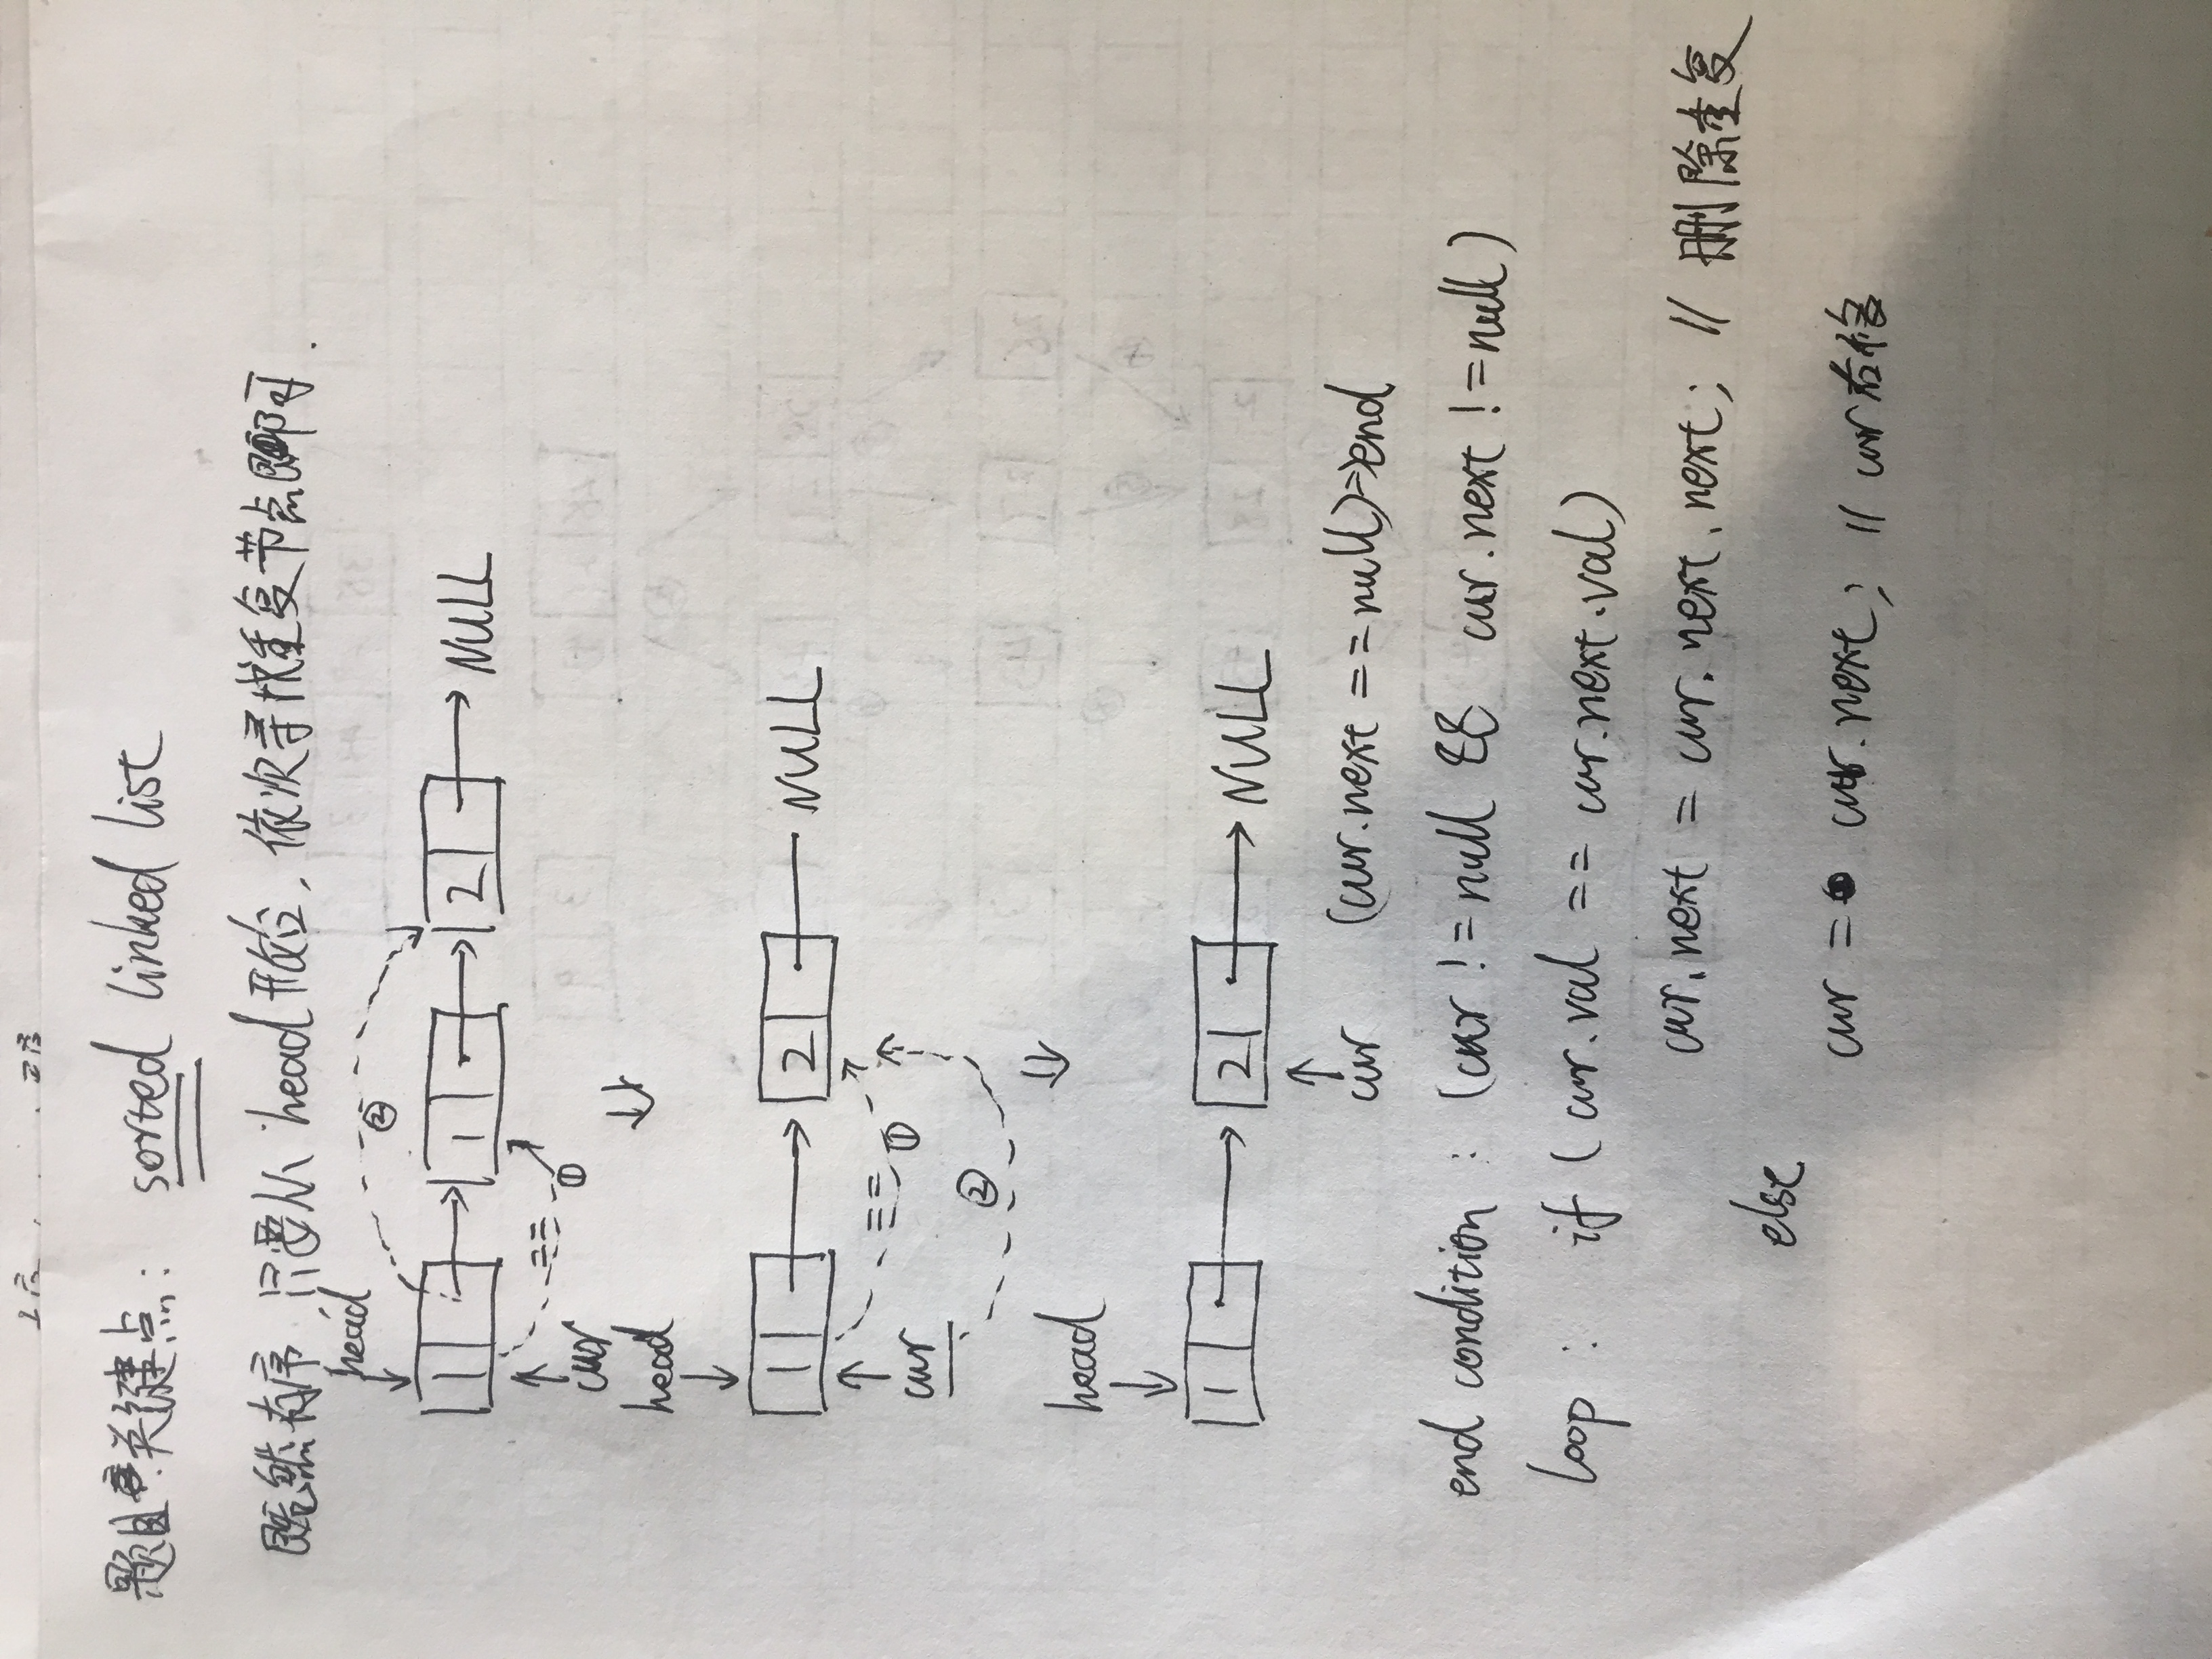 题目关键点: sorted linked list
既然有序,只要从 head 开始,依次寻找重复节点即可.
head
②
1 1 2 NULL
== ①
cur
head
1 2 NULL
== ①
cur
②
head
1 2 NULL
cur (cur.next == null)=>end
end condition : (cur != null && cur.next != null)
loop : if ( cur.val == cur.next.val)
cur.next = cur.next.next; // 删除重复
else
cur = cur.next; // cur右移